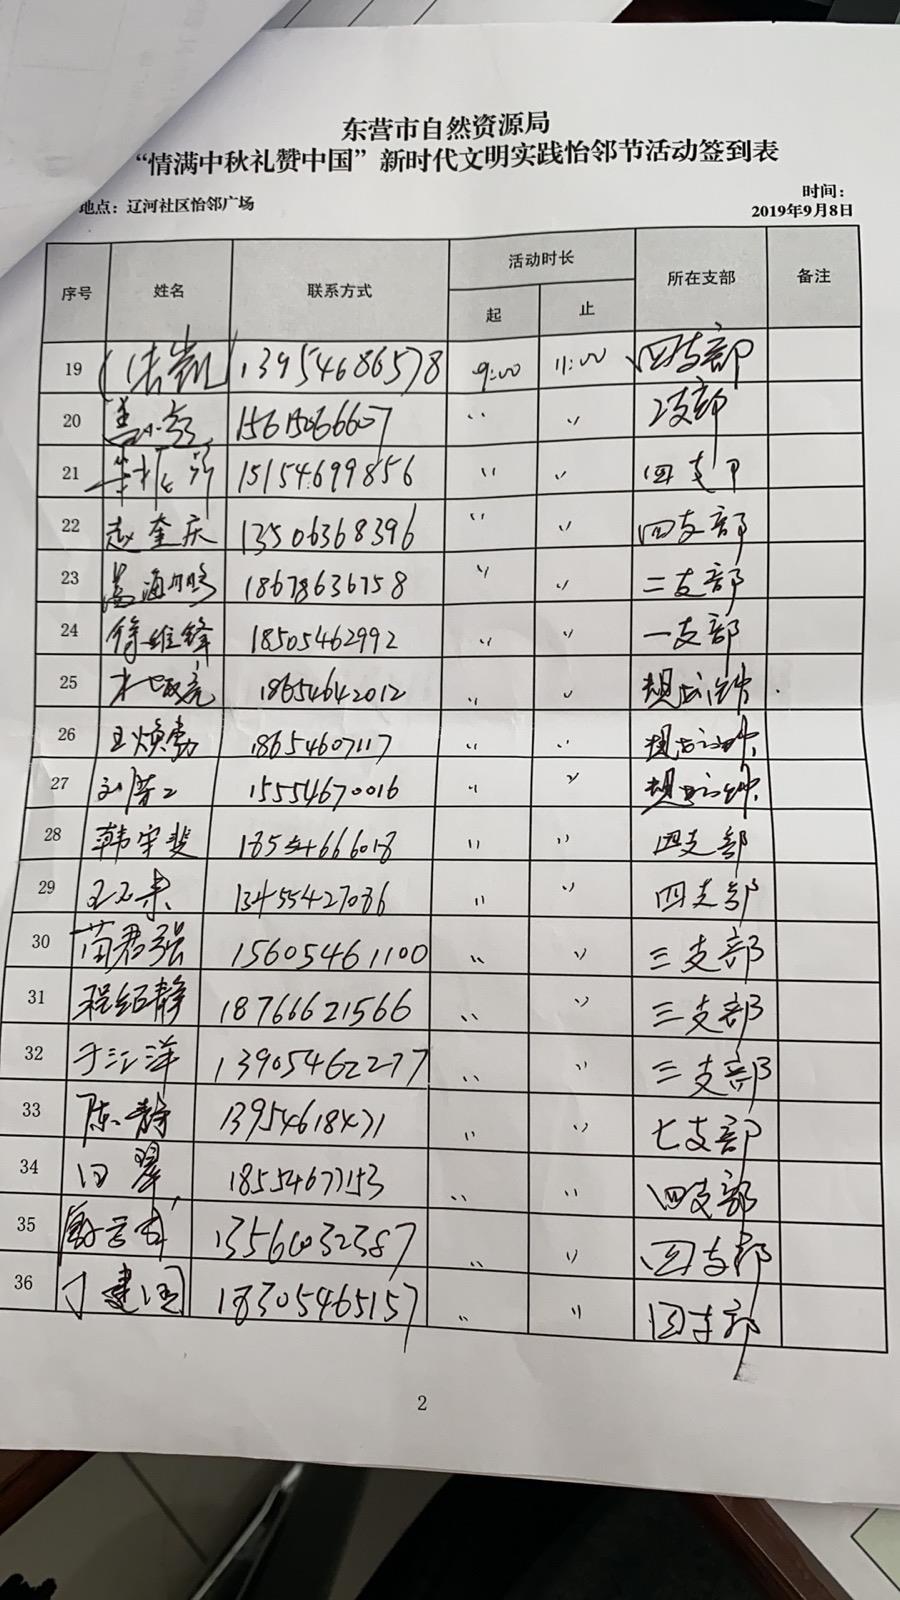 东营市自然资源局
“情满中秋礼赞中国”新时代文明实践怡邻节活动签到表
地点：辽河社区怡邻广场 时间：
2019年9月8日
序号 姓名 联系方式 活动时长 所在支部 备注
起 止
19 法凯 13954686578 9:00 11:00 四支部
20 15615066607 〃 〃 2支部
21 15154699856 〃 〃 四支
22 赵奎庆 13506368396 〃 〃 四支部
23 18678636758 〃 〃 二支部
24 徐维锋 18505462992 〃 〃 一支部
25 18654642012 〃 〃
26 王焕勇 18654607117 〃 〃
27 15554670016 〃 〃
28 韩宇斐 〃 〃 四支部
29 王玉 13455427086 〃 〃 四支部
30 苗君强 15605461100 〃 〃 三支部
31 程绍静 18766621566 〃 〃 三支部
32 于江洋 13905462277 〃 〃 三支部
33 陈静 13954618471 〃 〃 七支部
34 翠 18554677153 〃 〃 四支部
35 〃 〃 四支部
36 丁建国 18305465157 〃 〃 四支部
2